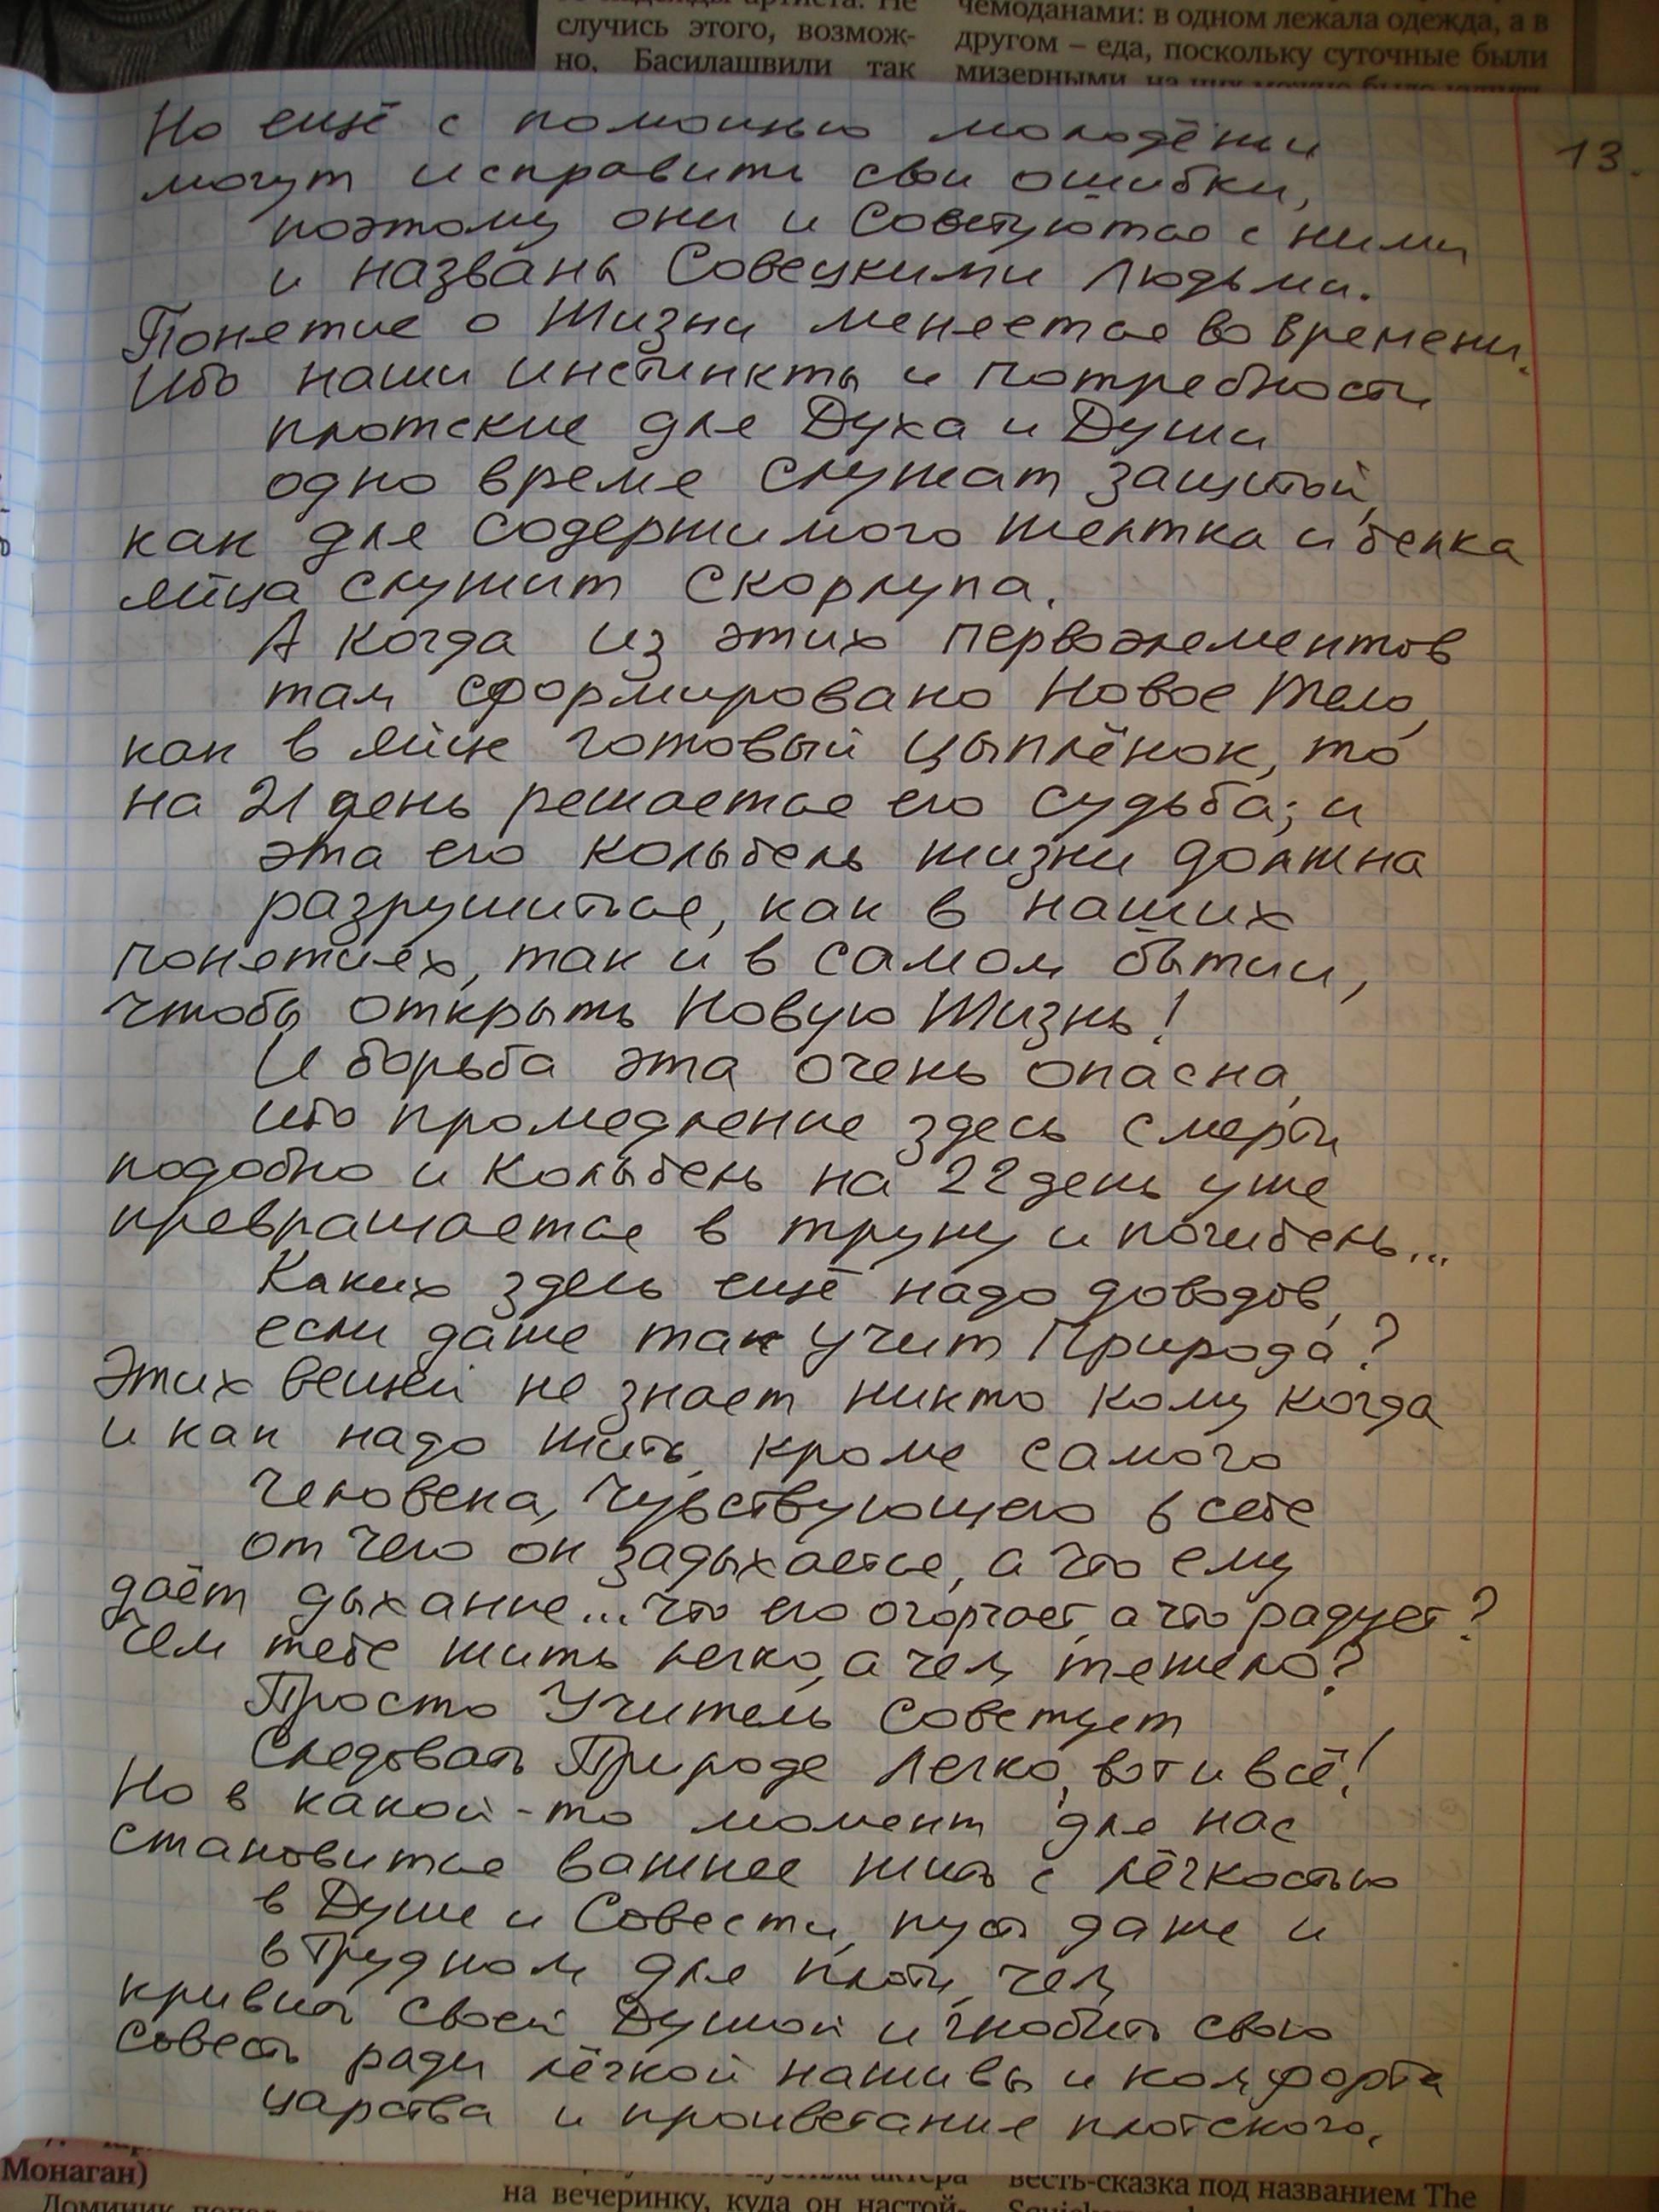 случись этого, возмож-
но, Басилашвили так
чемоданами: в одном лежала одежда, а в
другом – еда, поскольку суточные были
13.
Но ещё с помощью молодёжи
могут исправить свои ошибки,
поэтому они и Советуются с ними
и названы Совецкими Людьми.
Понятие о Жизни меняется во времени.
Ибо наши инстинкты и потребности
плотские для Духа и Души
одно время служат защитой,
как для содержимого желтка и белка
яйца служит скорлупа.
А когда из этих первоэлементов
там сформировано Новое Тело,
как в яйце готовый цыплёнок, то
на 21 день решается его судьба; и
эта его колыбель жизни должна
разрушиться, как в наших
понятиях, так и в самом бытии,
чтобы открыть Новую Жизнь!
И борьба эта очень опасна,
ибо промедление здесь смерти
подобно и Колыбель на 22 день уже
превращается в труну и погибель...
Каких здесь ещё надо доводов,
если даже так учит Природа?
Этих вещей не знает никто кому когда
и как надо жить, кроме самого
человека, чувствующего в себе
от чего он задыхается, а что ему
даёт дыхание... что его огорчает, а что радует?
Чем тебе жить легко, а чем тяжело?
Просто Учитель Советует
Следовать Природе легко, вот и всё!
Но в какой-то момент для нас
становится важнее жить с лёгкостью
в Душе и Совести, пусть даже и
в трудном для плоти, чем
кривить своей Душой и гнобить свою
совесть ради лёгкой наживы и комфорта
царства и процветания плотского.
Монаган)
Доминик
на вечеринку, куда он настой-
весть-сказка под названием The